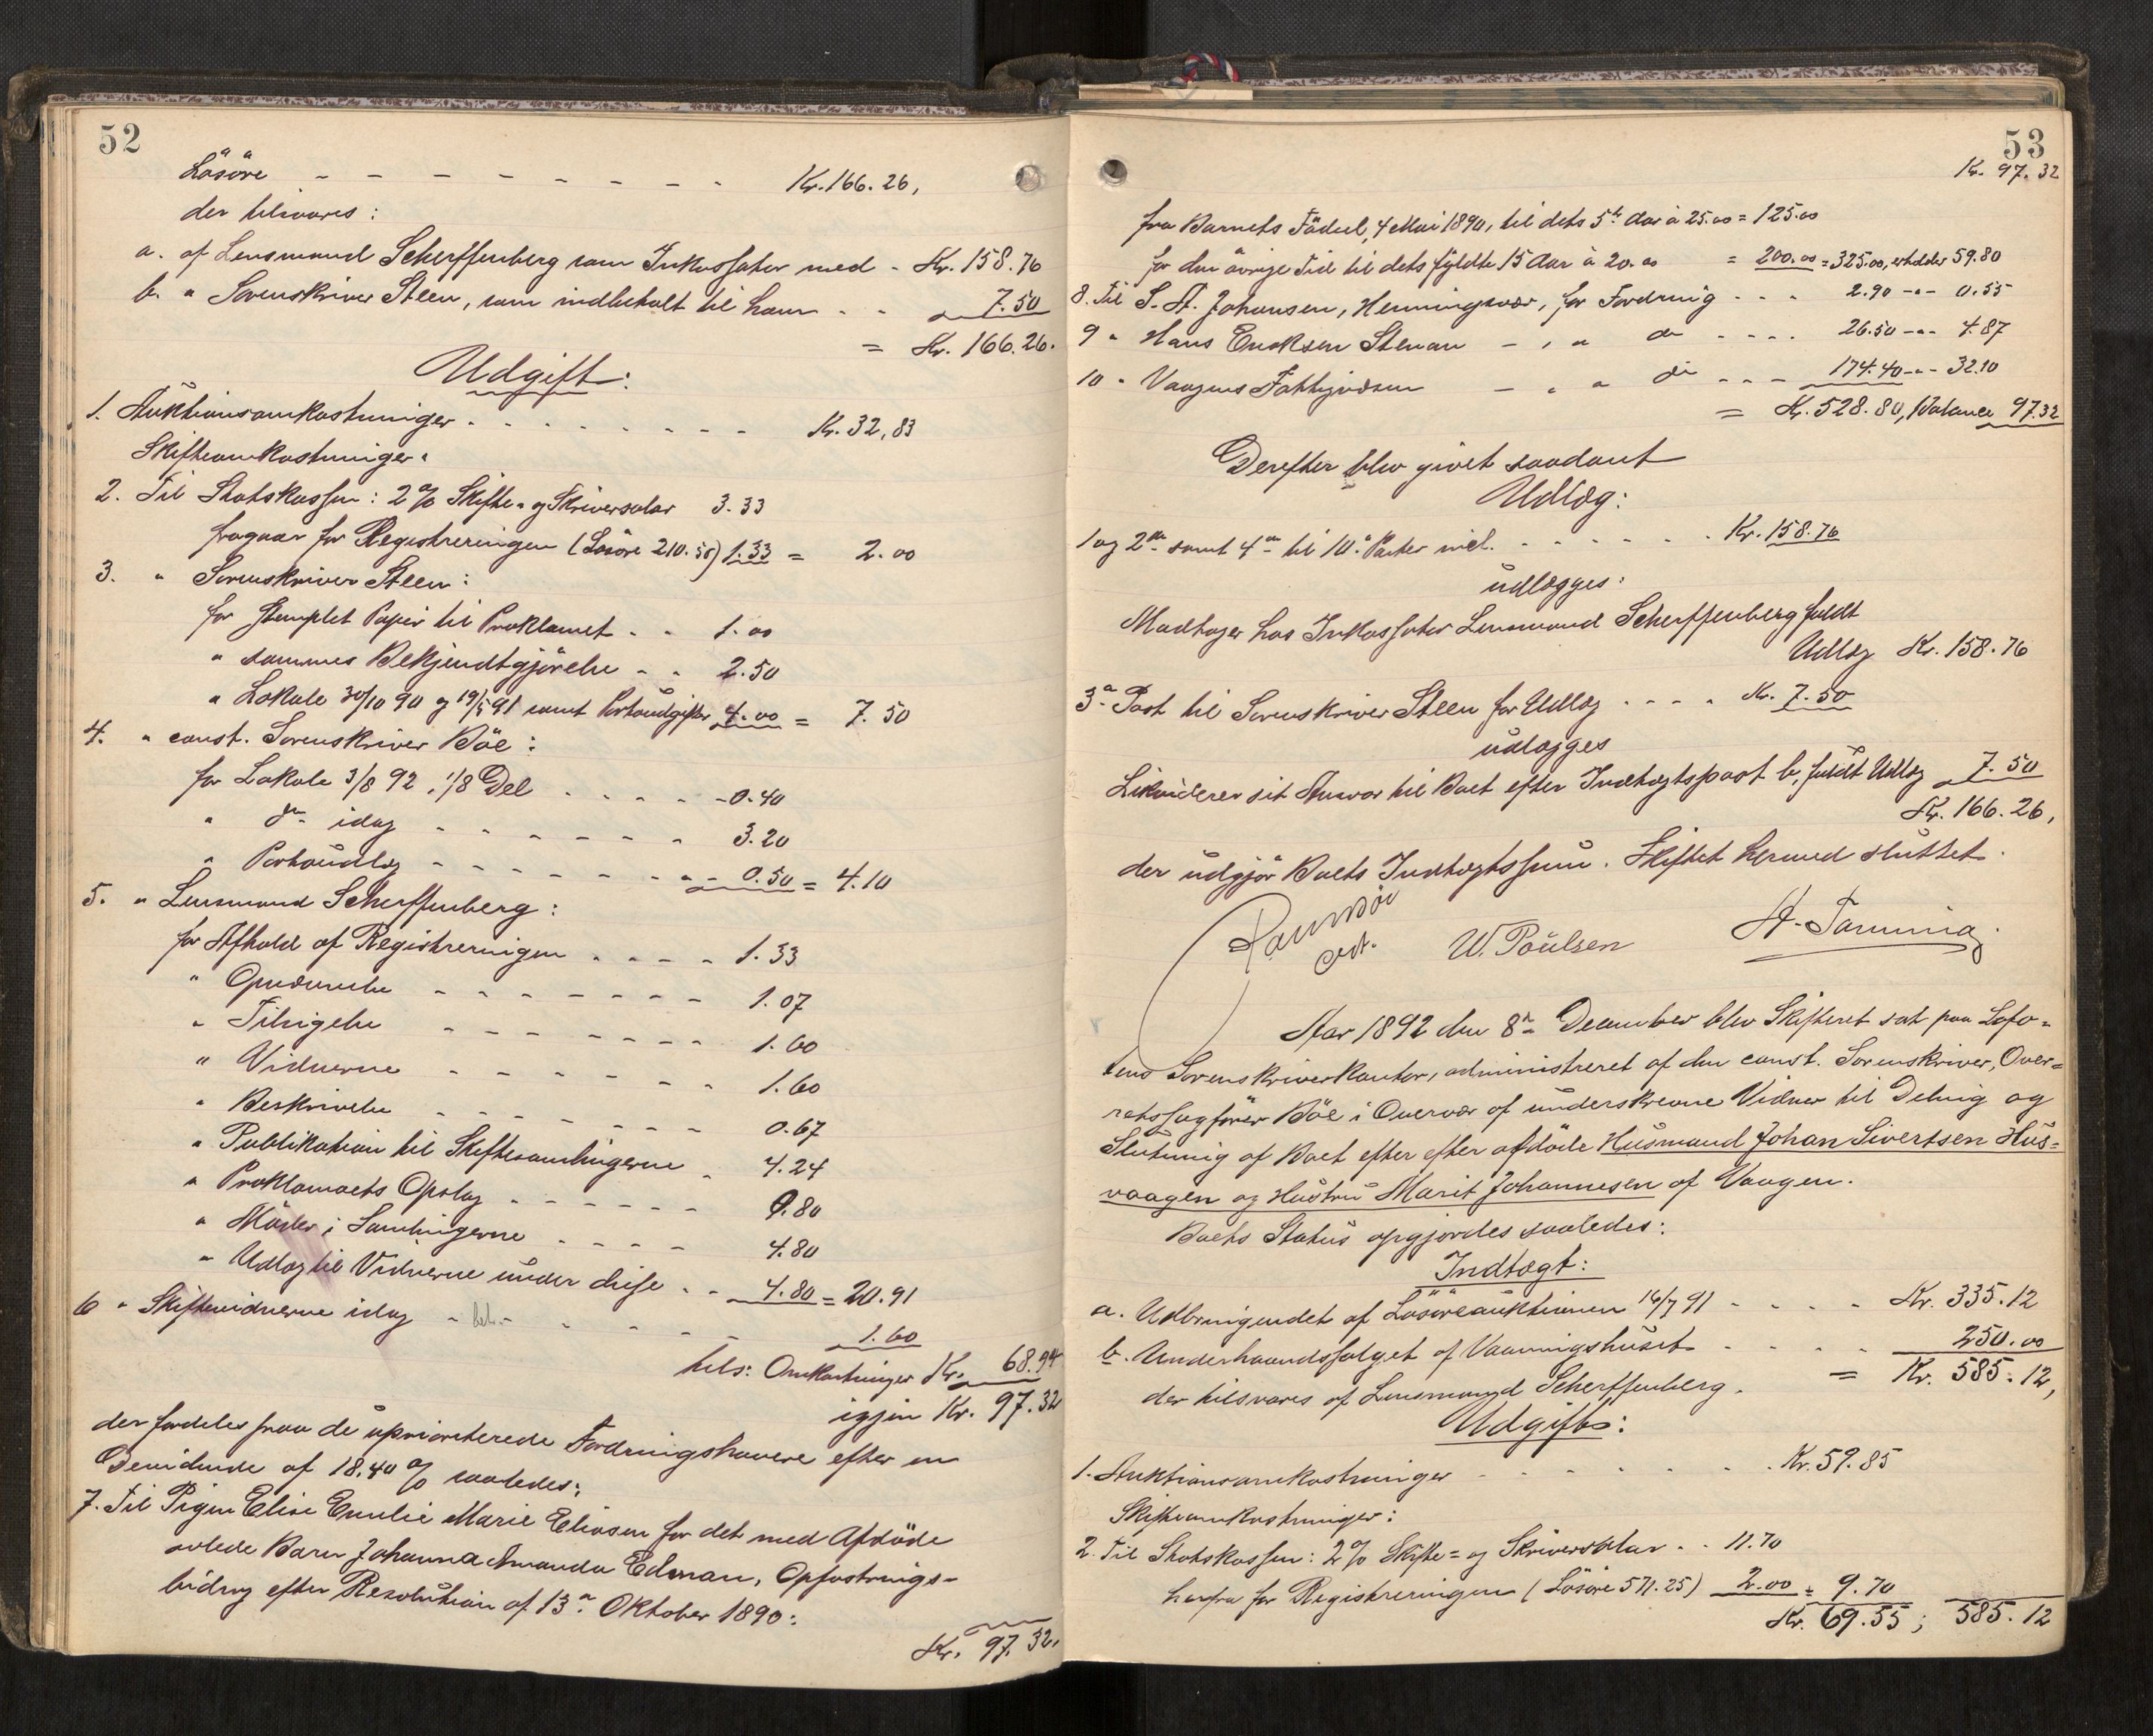 52
Løsøre - - - - - - - - - Kr. 166. 26,
der tilsvares:
a. af Lensmand Scherffenberg som Inkassator med - Kr. 158. 76
b. " Sorenskriver Steen, som indbeholt til ham - - 7. 50
= Kr. 166. 26.
Udgift:
1. Auktionsomkostninger - - - - - - - - Kr. 32, 83
Skifteomkostninger:
2. Til Statskassen: 2 % Skifte- og Skriversalar 3. 33
fragaar for Registreringen (Løsøre 210. 50) 1. 33 = 2. 00
3. " Sorenskriver Steen:
for stemplet Papir til Proklamet - - 1. 00
" sammes Bekjendtgjørelse - - 2. 50
" Lokale 30/10 90 og 19/5 91 samt Portoudgifter 4. 00 = 7. 50
4. " const. Sorenskriver Bøe:
for Lokale 3/8 92, 1/8 Del - - - - - 0. 40
" do idag - - - - - - - 3. 20
" Portoudlæg - - - - - - - 0. 50 = 4. 10
5. " Lensmand Scherffenberg:
for Afhold af Registreringen - - - - 1. 33
" Opnævnelse - - - - - - - 1. 07
" Tilsigelse - - - - - - - 1. 60
" Vidnerne - - - - - - - 1. 60
" Beskrivelse - - - - - - - 0. 67
" Publikation til Skiftesamlingerne - 4. 24
" Proklamaets Opslag - - - - - - 0. 80
" Møder i Samlingerne - - - - 4. 80
" Udlæg til Vidnerne under disse - - 4. 80 = 20. 91
6 " Skiftevidnerne idag - bet. - - - - - 1. 60
tils: Omkostninger Kr. 68. 94
igjen Kr. 97. 32
der fordeles paa de uprioriterede Fordringshavere efter en
Devidende af 18,40 % saaledes:
7. Til Pigen Elise Emilie Marie Eliasen for det med Afdøde
avlede Barn Johanna Amanda Edman, Opfostrings-
bidrag efter Resolution af 13de Oktober 1890:
Kr. 97. 32.
53
Kr. 97. 32
fra Barnets Fødsel, 4 Mai 1890, til dets 5te Aar à 25.00 = 125.00
for den øvrige Tid til dets fyldte 15 Aar à 20. 00 = 200. 00 = 325.00, erholder 59. 80
8. Til S. A. Johansen, Henningsvær, for Fordring - - - 2. 90 - " - 0. 55
9 " Hans Eriksen Stenan - , " do - - - - 26. 50 - " - 4. 87
10 " Vaagens Fattigvæsen - " " do - - - 174. 40 - " - 32. 10
= Kr. 528. 80, Balance 97. 32
Derefter blev givet saadant
Udlæg:
1 og 2den samt 4de til 10de Poster incl. - - - - - - Kr. 158. 76
udlægges:
Modtager hos Inkassator Lensmand Scherffenberg fuldt
Udlæg Kr. 158. 76
3die Post til Sorenskriver Steen for Udlæg - - - - Kr. 7. 50
udlægges
Likviderer sit Ansvar til Boet efter Indtægtspost b, fuldt Udlæg 7. 50
Kr. 166. 26,
der udgjør Boets Indtægtssum. Skiftet hermed sluttet.
cst. W. Poulsen
Aar 1892 den 8de December blev Skifteret sat paa Lofo-
tens Sorenskriverkontor, administreret af den const. Sorenskriver, Over-
retssagfører Bøe i Overvær af underskrevne Vidner til Deling og
Slutning af Boet efter efter afdøde Husmand Johan Sivertsen Hus-
vaagen og Hustru Marit Johannesen af Vaagen.
Boets Status opgjordes saaledes:
Indtægt:
a. Udbringendet af Løsøreauktionen 16/7 91 - - - - Kr. 335. 12
b. Underhaandssalget af Vaaningshuset - - - - 250. 00
= Kr. 585. 12,
der tilsvares af Lensmand Scherffenberg.
Udgift:
1. Auktionsomkostninger - - - - - - - Kr. 59. 85
Skifteomkostninger:
2. Til Statskassen: 2 % Skifte= og Skriversalar - - 11. 70
herfra for Registreringen (Løsøre 571. 25) 2. 00 = 9. 70
Kr. 69. 55; 585. 12